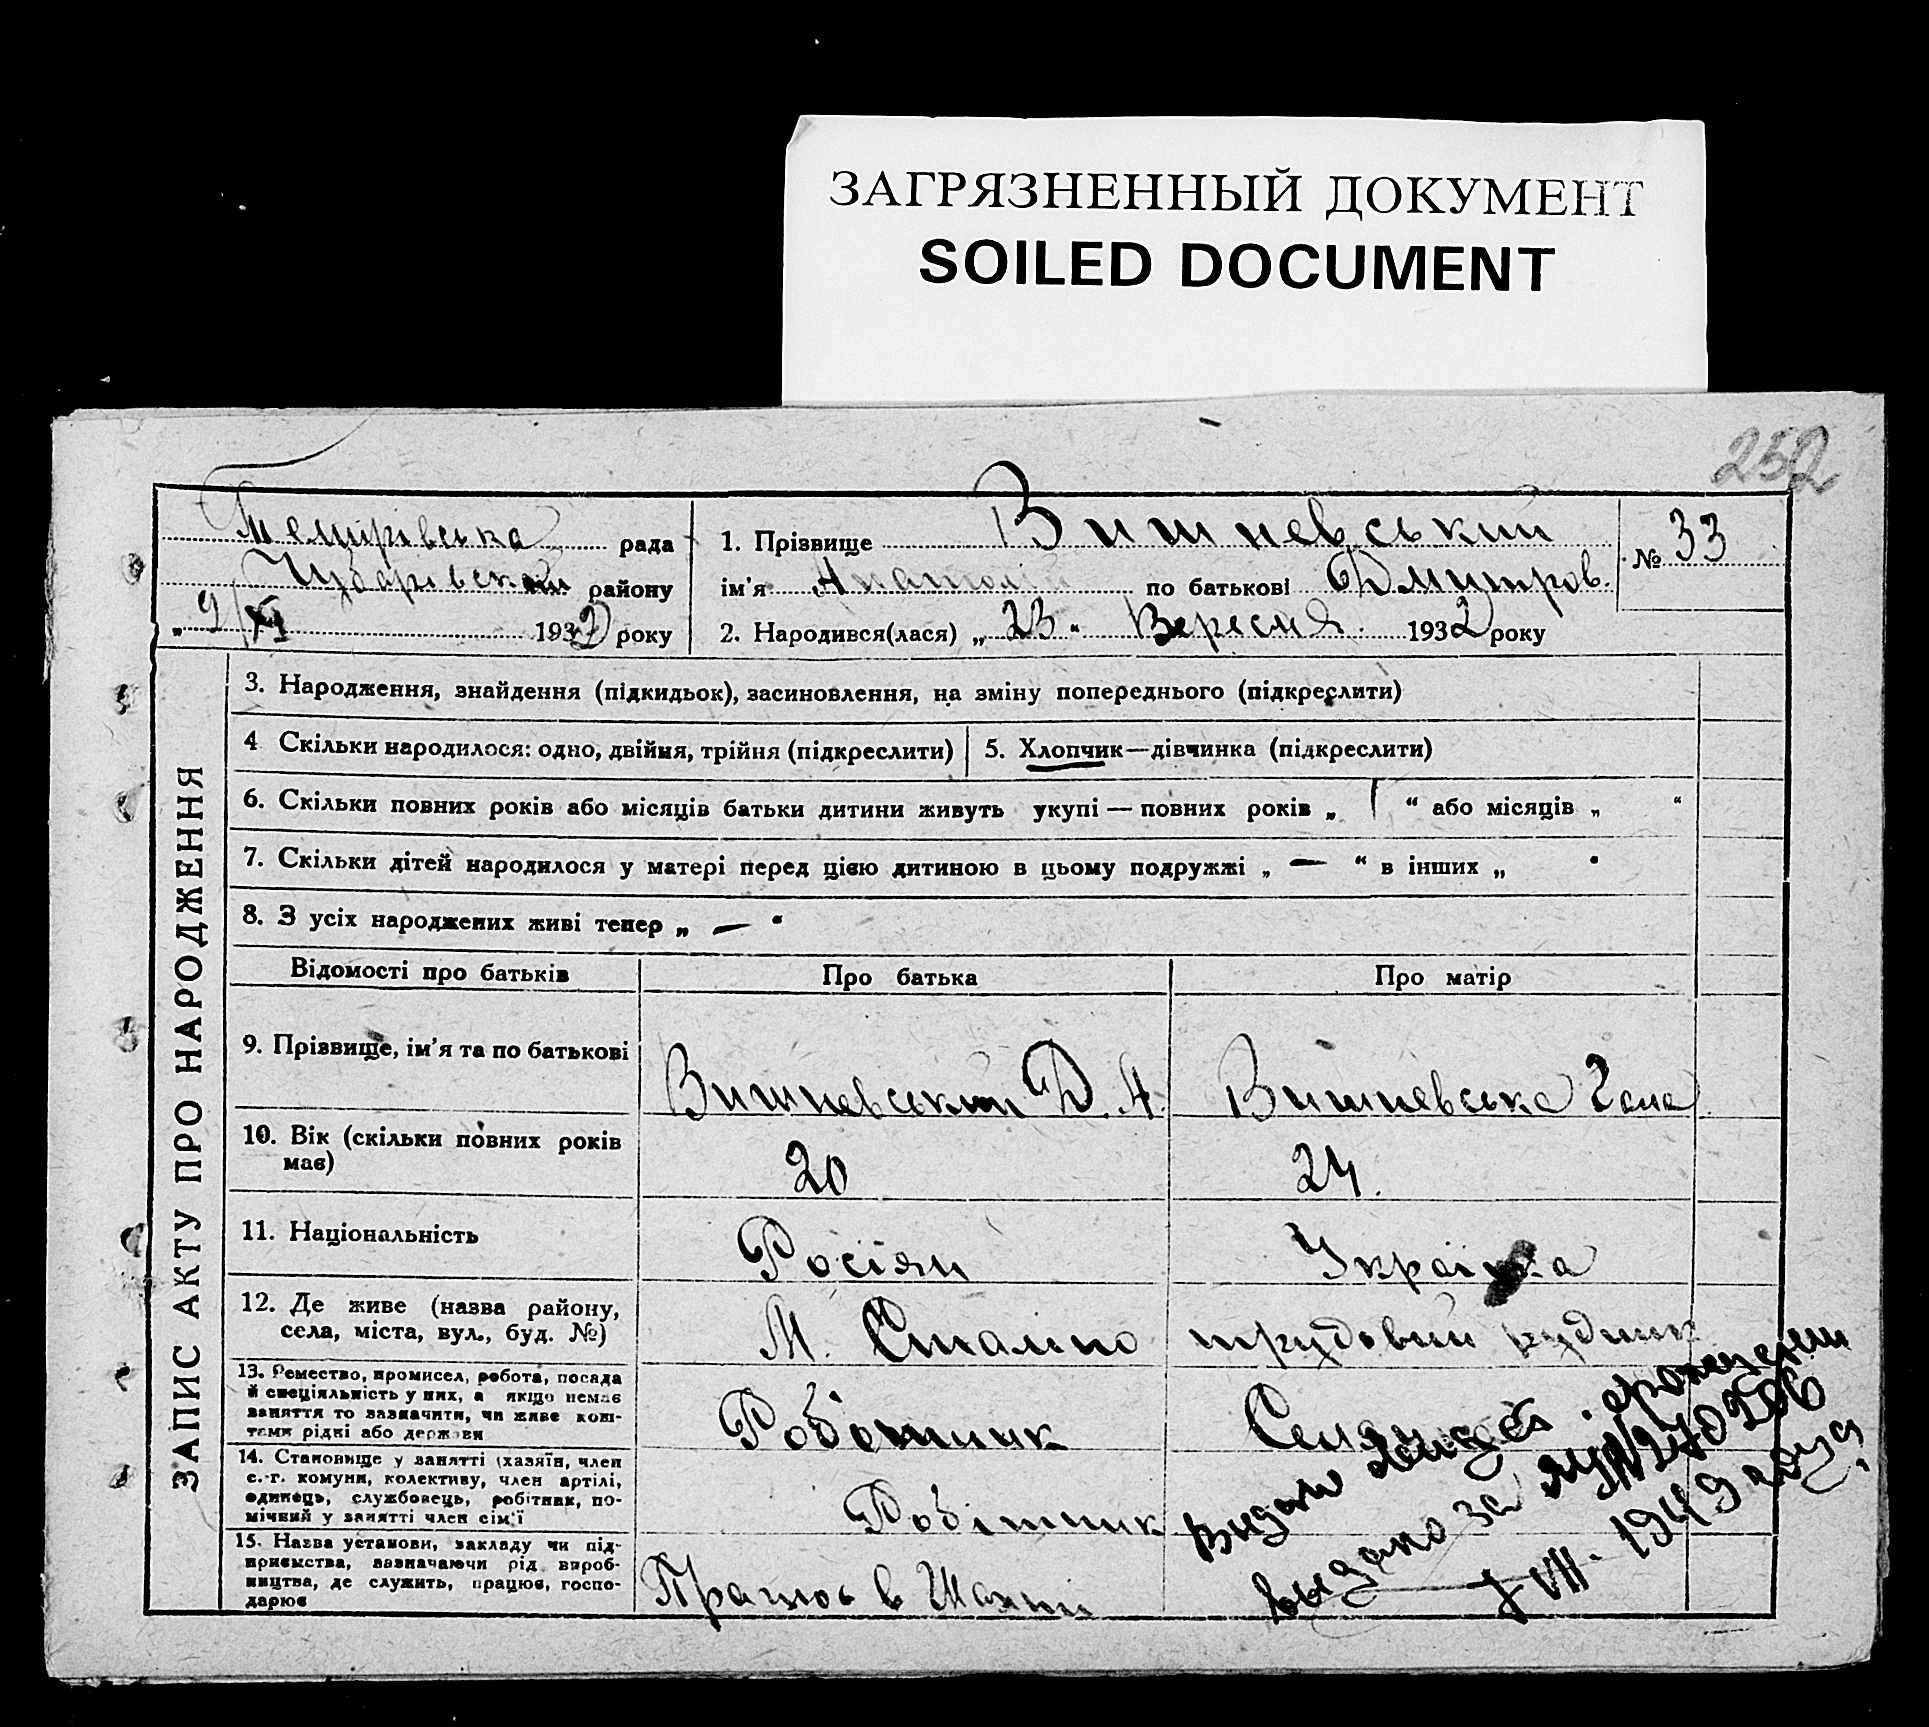 ЗАГРЯЗНЕННЫЙ ДОКУМЕНТ
SOILED DOCUMENT
252
Темирівська рада
Чубарівський району
„ 9/XI 1932 року
1. Прізвище Вишневський
ім'я Анатолій по батькові Дмитров.
2. Народився(лася) „ 23 “ Вересня 1932 року
№ 33
ЗАПИС АКТУ ПРО НАРОДЖЕННЯ
3. Народження, знайдення (підкидьок), засиновлення, на зміну попереднього (підкреслити)
4 Скільки народилося: одно, двійня, трійня (підкреслити)
5. Хлопчик—дівчинка (підкреслити)
6. Скільки повних років або місяців батьки дитини живуть укупі — повних років „ 1 “ або місяців „ “
7. Скільки дітей народилося у матері перед цією дитиною в цьому подружжі „ — “ в інших „ “
8. З усіх народжених живі тепер „ — “
Відомості про батьків Про батька Про матір
9. Прізвище, ім'я та по батькові Вишневський Д. А. Вишневська Гана
10. Вік (скільки повних років
має) 20 24.
11. Національність Росіян Українка
12. Де живе (назва району,
села, міста, вул., буд. №) М. Сталіно трудовий рудник
13. Ремество, промисел, робота, посада
й спеціяльність у них, а якщо немає
заняття то зазначити, чи живе кош-
тами рідні або держави Робітник
14. Становище у занятті (хазяїн, член
с.-г. комуни, колективу, член артілі,
одинець, службовець, робітник, по-
мічний у занятті член сім'ї Робітник
15. Назва установи, закладу чи під-
приємства, зазначаючи рід вироб-
ництва, де служить, працює, госпо-
дарює Працює в Шахти
выдано за
VII. 1949 года